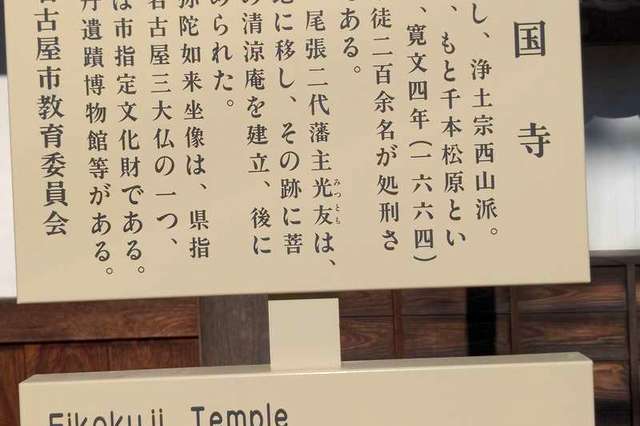 国寺
し、浄土宗西山派。
、もと千本松原とい
、寛文四年(一六六四)
徒二百余名が処刑さ
ある。
尾張二代藩主光友は、
みつとも
に移し、その跡に菩
の清涼庵を建立、後に
められた。
弥陀如来坐像は、県指
名古屋三大仏の一つ、
は市指定文化財である。
丹遺蹟博物館等がある。
名古屋市教育委員会
Eikokuji Temple